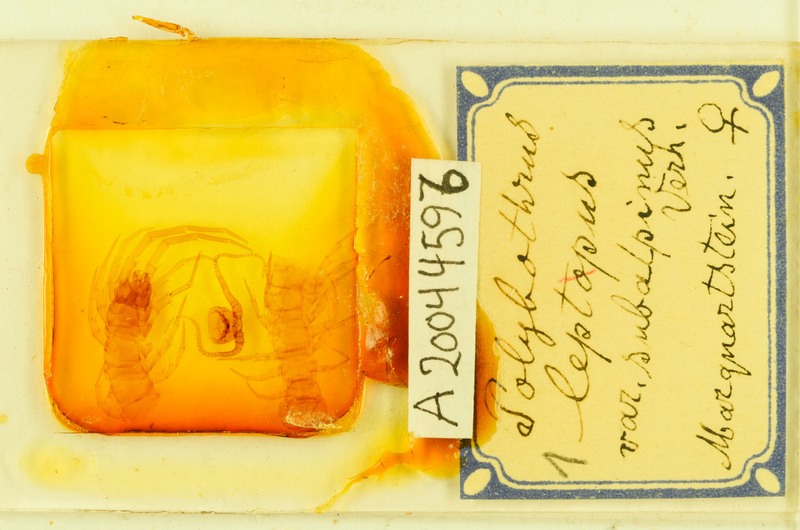 A20044596
Polybothrus
1 leptopus
var. subalpinus
Verh.
Marquartstein. ♀